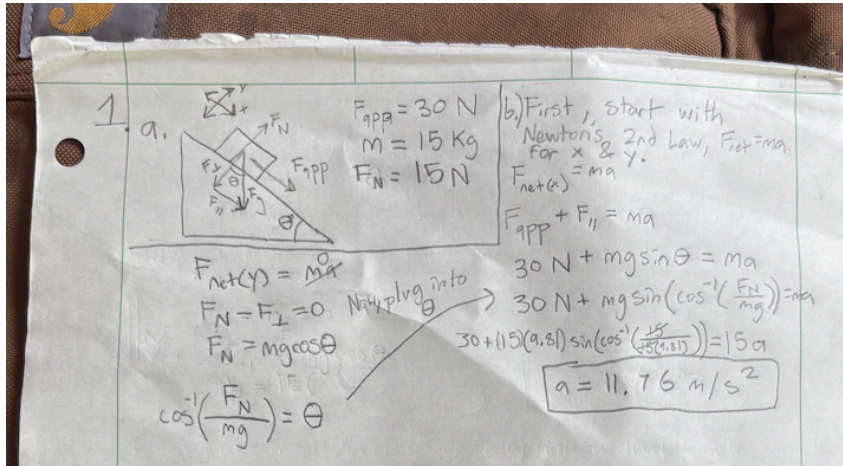 1. a.
y
x
F_N
F_app
F_⊥
θ
F_g
F_||
θ
F_app = 30 N
m = 15 Kg
F_N = 15 N
F_net(y) = ma 0
F_N - F_⊥ = 0
F_N = mgcosθ
cos⁻¹(F_N/mg) = θ
Now, plug into
θ
b.) First, start with
Newtons 2nd Law, F_net = ma.
for x & y.
F_net(x) = ma
F_app + F_|| = ma
30 N + mg sin θ = ma
30 N + mg sin(cos⁻¹(F_N/mg)) = ma
30 + (15)(9.81) sin(cos⁻¹(15/15(9.81))) = 15a
a = 11.76 m/s²